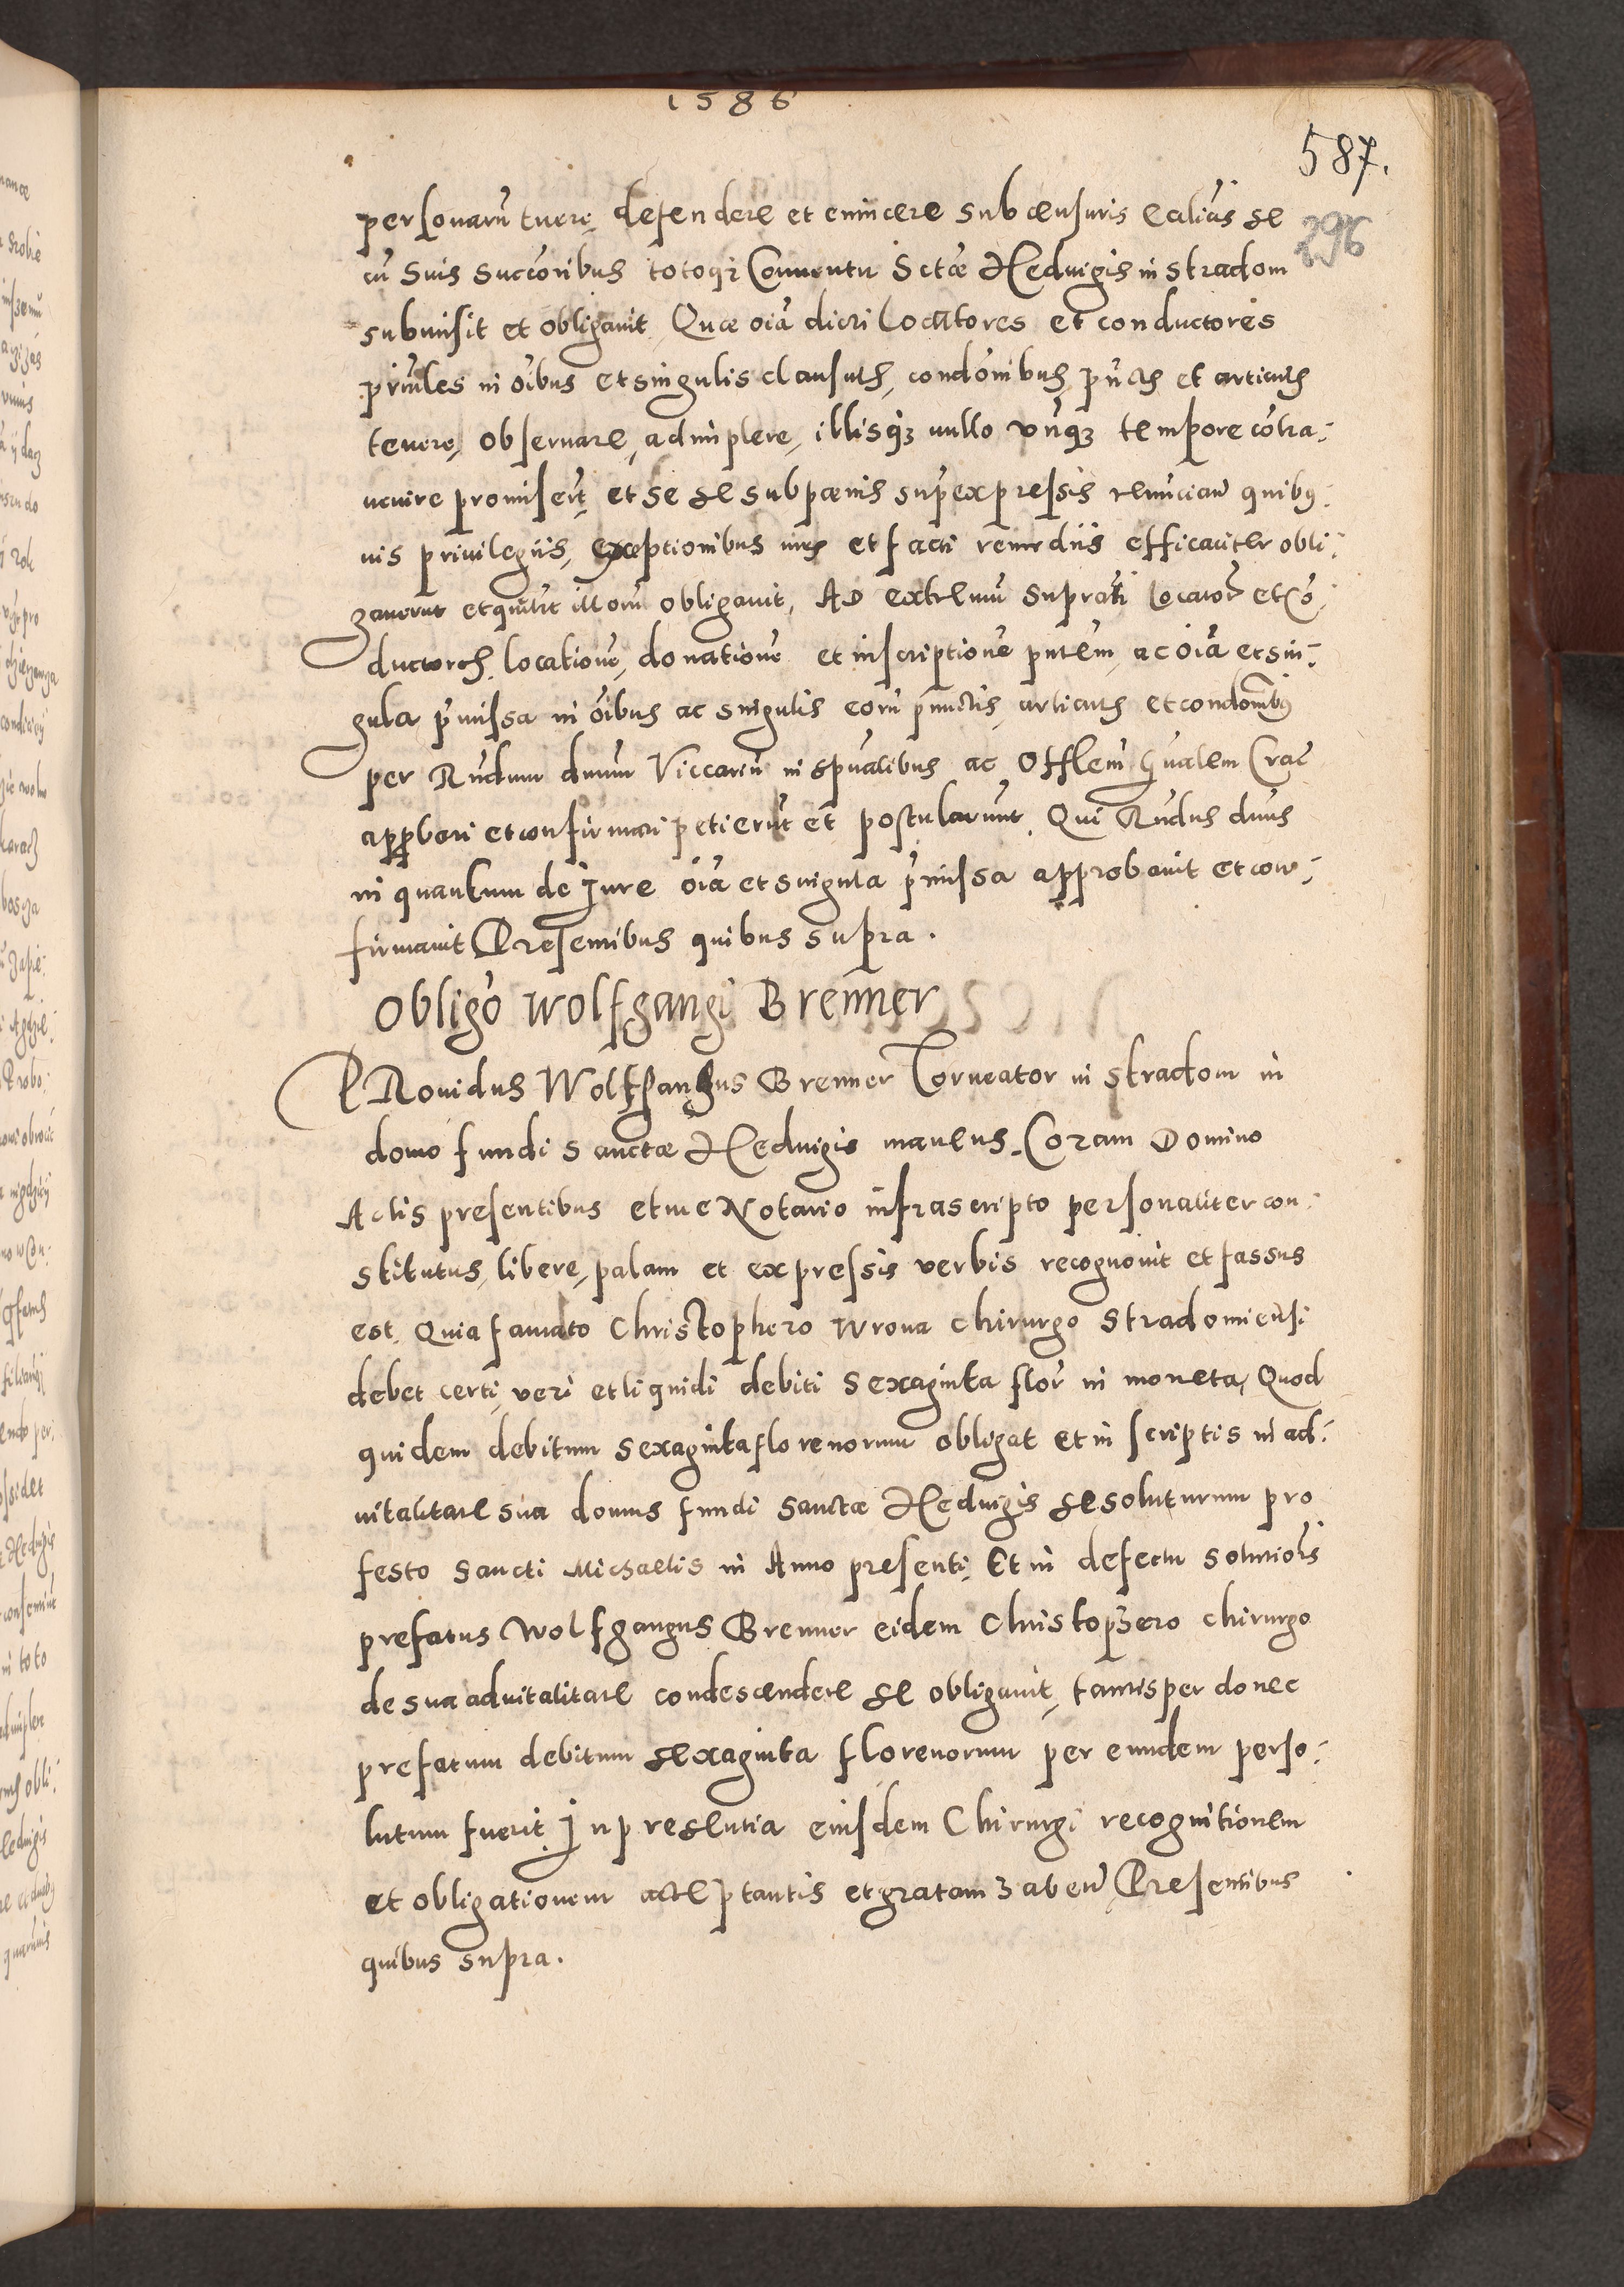 1586
587.
296
personarũ tuere, defendere et evincere sub censuris ecclicis se
cũ suis successoribus totoqz Conventu Sctae Hedvigis in Stradom
submisit et obligavit. Quae oĩa dicti Locatores et conductores
principales in oĩbus et singulis clausulis, condõnibus pũctis et articulis
tenere, observare, adimplere, illisqz nullo vnqz tempore cõtra-
venire promiserũt, et se se sub poenis supexpressis renũciand quibus-
vis privilegiis, exceptionibus iuris et facti remediis efficaciter obli-
gaverunt et quilibet illorũ obligavit. Ad extremũ supradicti Locatores et Cõ-
ductores, locationẽ, donationẽ et inscriptionẽ pñtem, ac oĩa et sin-
gula pmissa in oĩbus ac singulis eorũ punctis, articulis et condõnibus
per Rndum dnum Viccariũ in spũalibus ac Offlem Gñalem Crac
approbari et confirmari petierũt et postularunt. Qui Rndus dnus
in quantum de Jure oĩa et singula pmissa approbavit et con-
firmavit Presentibus quibus supra.
Obligo Wolfgangi Brenner
PRovidus Wolfgangus Brenner Torneator in Stradom in
domo fundi Sanctae Hedvigis manens. Coram Domino
Actis presentibus et me Notario infrascripto personaliter con-
stitutus, libere, palam et expressis verbis recognovit et fassus
est. Quia famato Christophero Wrona Chirurgo Stradomiensi
debet certi, veri et liquidi debiti sexaginta flor in moneta, Quod
quidem debitum sexaginta florenorum obligat et in scriptis in ad-
vitalitate sua domus fundi Sanctae Hedvigis se soluturum pro
festo Sancti Michaelis in Anno presenti. Et in defectu solutionis
prefatus Wolfgangus Brenner eidem Christophero Chirurgo
de sua advitalitate condescendere se obligavit, tantisper donec
prefatum debitum sexaginta florenorum per eundem perso-
lutum fuerit. In presentia eiusdem Chirurgi recognitionem
et obligationem acceptantis et gratam haben Presentibus
quibus supra.